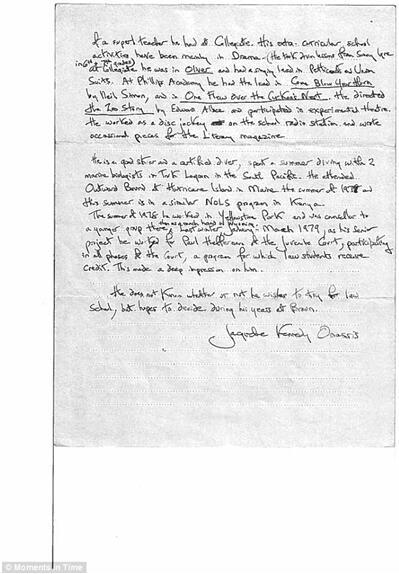 of a superb teacher he had at Collegiate. His extra-curricular school
activities have been mainly in Drama - (He took drum lessons from Sam Ulano
in 6th + 7th grades)
at Collegiate he was in Oliver and had a singing lead in Petticoats and Union
Suits. At Phillips Academy he had the lead in Come Blow Your Horn
by Neil Simon, and in One Flew over the Cuckoo's Nest. He directed
the Zoo Story by Edward Albee and participated in experimental theatre.
He worked as a disc jockey on the school radio station and wrote
occasional pieces for the Literary magazine
He is a good skier and a certified diver, spent a summer diving with 2
marine biologists in Truk Lagoon in the South Pacific. He attended
Outward Bound at Hurricane Island in Maine the summer of 1977 and
this summer is in a similar NOLS program in Kenya.
The summer of 1978 he worked in Yellowstone Park and was counsellor to
then as a ranch hand in Wyoming
a younger group there, Last winter January - March 1979, as his senior
project he worked for Paul Heffernan at the Juvenile Court, participating
in all phases of the Court, a program for which law students receive
credit. This made a deep impression on him.
He does not know whether or not he wishes to try for law
School, but hopes to decide during his years at Brown.
Jacqueline Kennedy Onassis
© Moments in Time